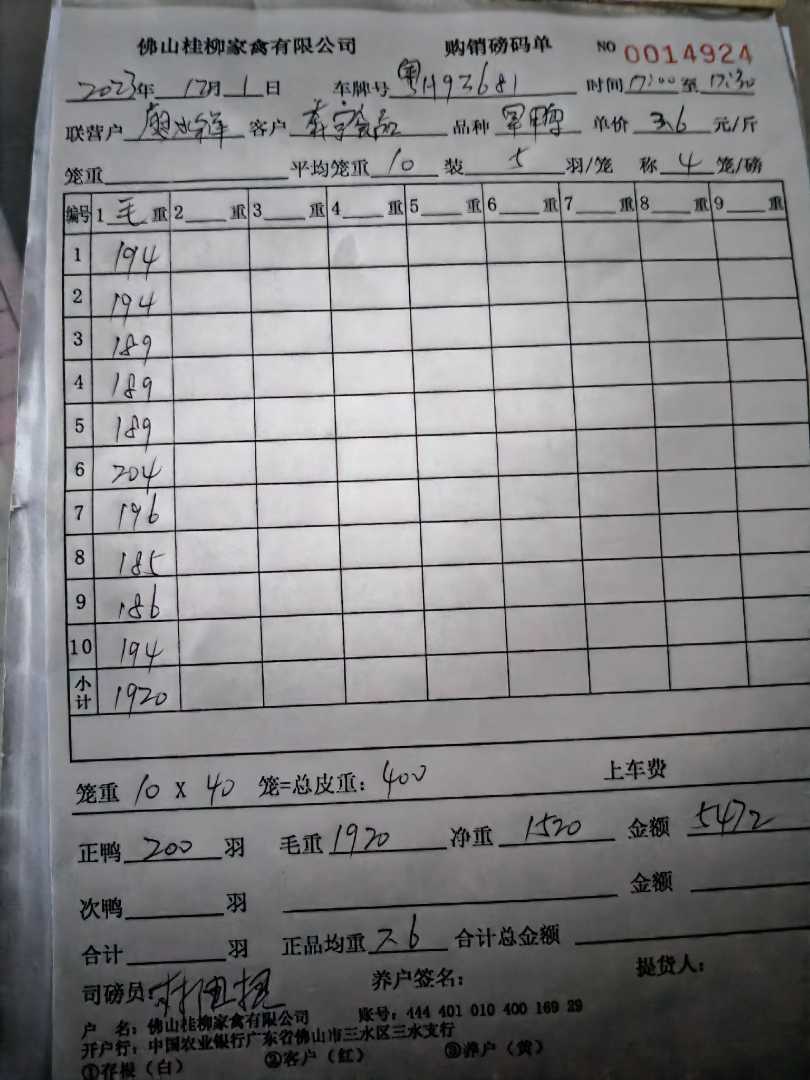 佛山桂柳家禽有限公司 购销磅码单 NO 0014924
2023年 12月 1日 车牌号 粤H93681 时间 17:00 至 17:30
联营户 客户 食品 品种 单价 3.6 元/斤
笼重 平均笼重 10 装 5 羽/笼 称 4 笼/磅
编号 1 毛 重 2 重 3 重 4 重 5 重 6 重 7 重 8 重 9 重
1 194
2 194
3 189
4 189
5 189
6 204
7 196
8 185
9 186
10 194
小计 1920
笼重 10 X 40 笼=总皮重: 400 上车费
正鸭 200 羽 毛重 1920 净重 1520 金额 5472
次鸭 羽 金额
合计 羽 正品均重 7.6 合计总金额
司磅员: 养户签名: 提货人:
户 名: 佛山桂柳家禽有限公司 账号: 444 401 010 400 169 29
开户行: 中国农业银行广东省佛山市三水区三水支行
①存根(白) ②客户(红) ③养户(黄)